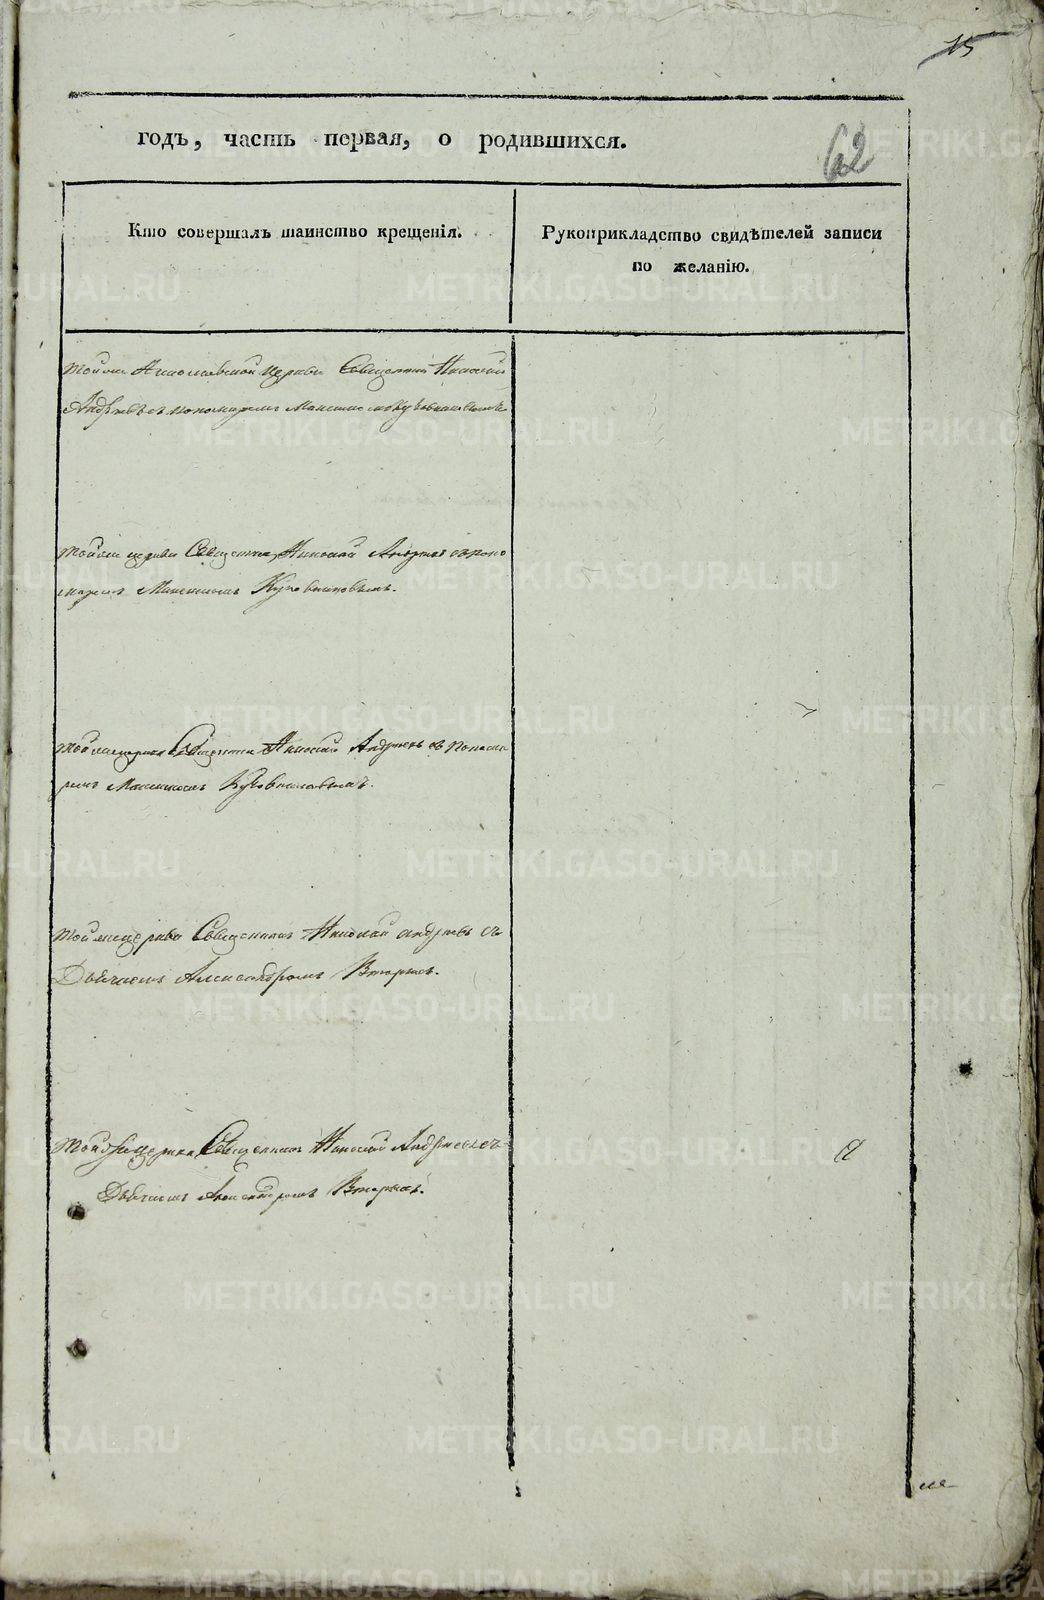 15
62
годъ, часть первая, о родившихся.
Кто совершалъ таинство крещенія.
Рукоприкладство свидѣтелей записи
по желанію.
Тойже Николаевской церкви Священникъ Николай
Андреевъ съ пономаремъ Максимомъ
Тойже церкви Священникъ Николай Андреевъ съ поно
маремъ Максимомъ
Тойже церкви Священникъ Николай Андреевъ съ Понома
ремъ Максимомъ
Тойже церкви Священникъ Николай Андреевъ съ
Дьячкомъ Александромъ
Тойже церкви Священникъ Николай Андреевъ съ
Дьячкомъ Александромъ
METRIKI.GASO-URAL.RU